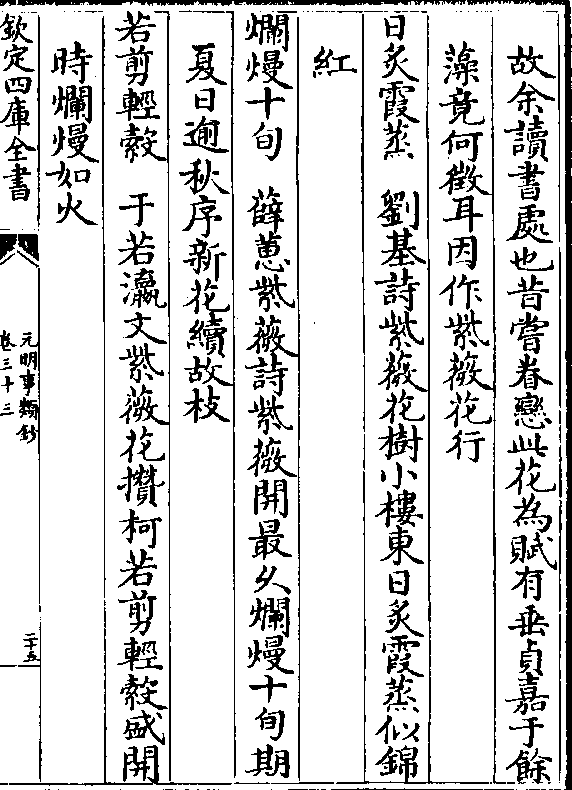 故余讀書處也昔嘗眷戀此花為賦有垂貞嘉于餘
藻竟何徵耳因作紫薇花行
日炙霞蒸　劉基詩紫薇花樹小樓東日炙霞蒸似錦
紅
爛熳十旬　薛蕙紫薇詩紫薇開最久爛熳十旬期
夏日逾秋序新花續故枝
若剪輕縠　于若瀛文紫薇花攢柯若剪輕縠盛開
時爛熳如火
欽定四庫全書
元明事類鈔
卷三十三
二十五